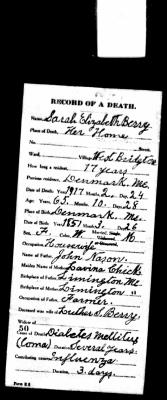 RECORD OF A DEATH.
Name, Sarah Elizabeth Berry
Place of Death, Her Home
No. Street.
Ward, Village, West Bridgton
How long a resident, 17 years
Previous residence, Denmark, Me.
Date of Death: Year, 1917 Month, 2 Day, 24
Age: Years, 65 Months, 10 Days, 28
Place of Birth, Denmark, Me.
Date of Birth: Year, 1851 Month, 3 Day, 26
Sex, F. Color, W. Married,
Occupation, Housewife
Name of Father, John Nason
Maiden Name of Mother, Lavina Chick
Birthplace of Father, Limington Me.
Birthplace of Mother, Limington
Occupation of Father, Farmer.
Deceased was wife of Luther S. Berry
Widow of
50
Cause of Death, Diabetes Mellitus
(Coma) Duration, Several Years
Contributing cause, Influenza
Duration, 3 days.